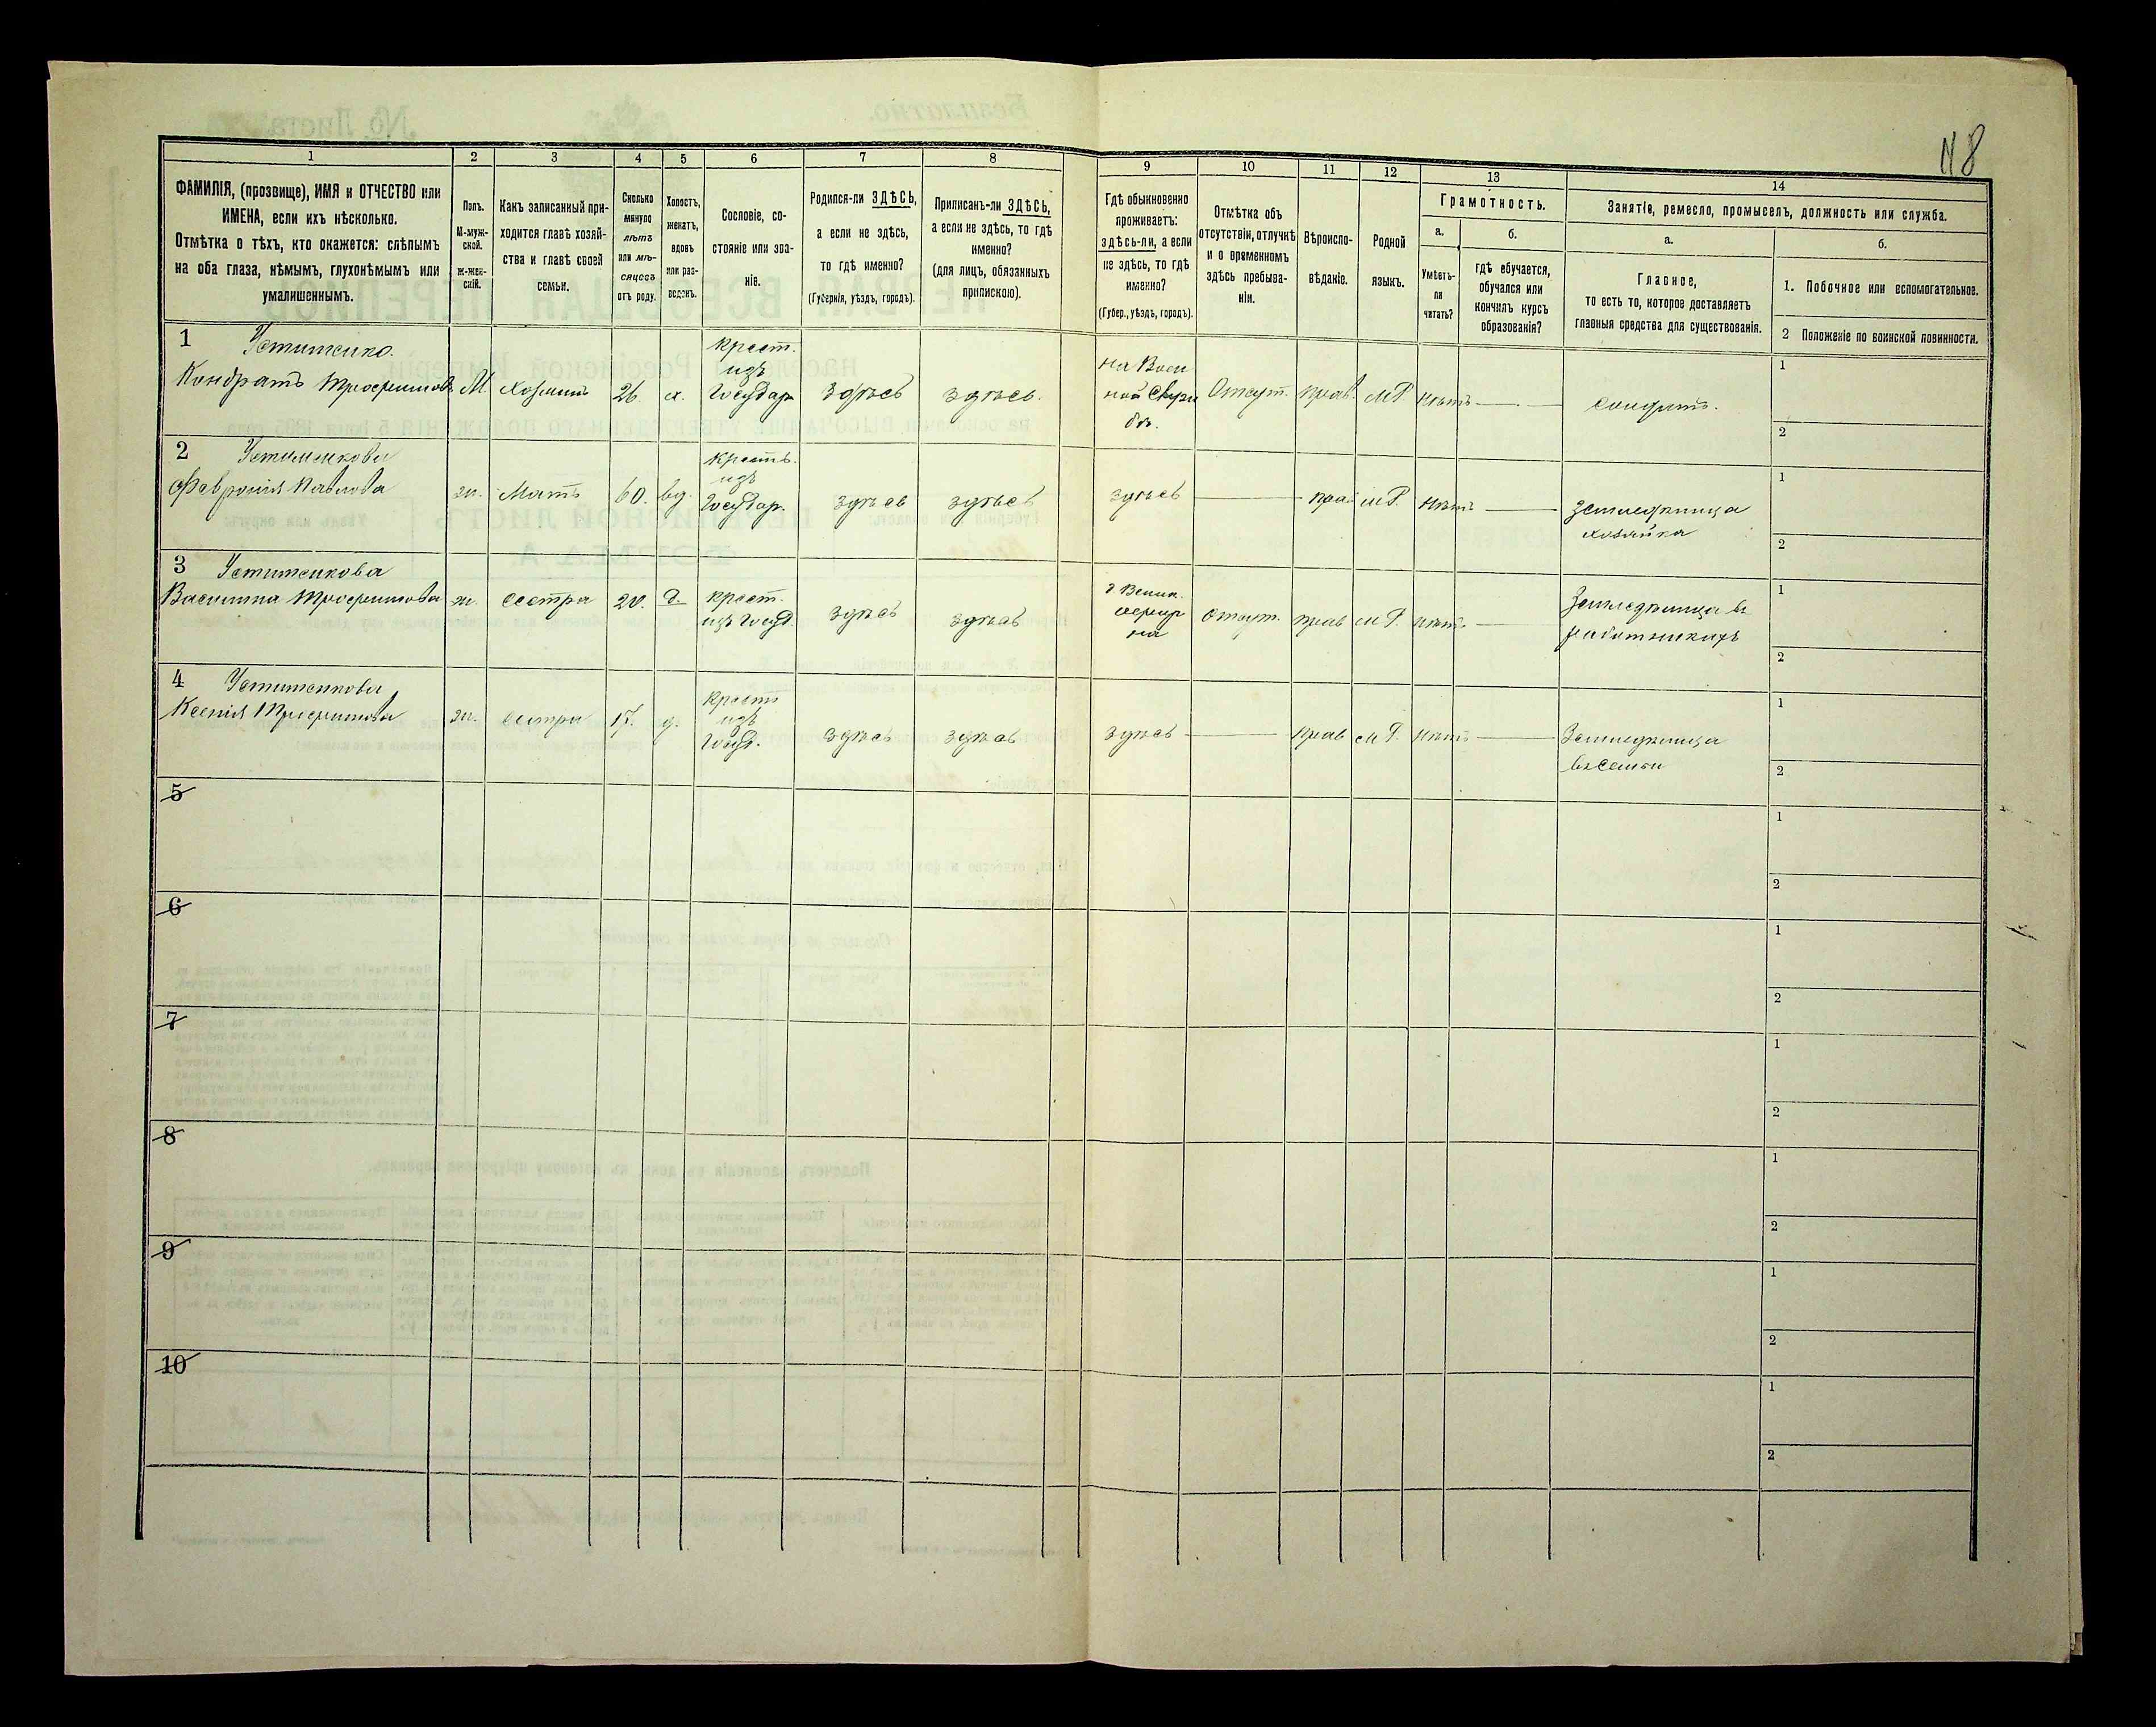 118
1
2
3
4
5
6
7
8
9
10
11
12
13
14
ФАМИЛІЯ, (прозвище), ИМЯ и ОТЧЕСТВО или
ИМЕНА, если ихъ нѣсколько.
Отмѣтка о тѣхъ, кто окажется: слѣпымъ
на оба глаза, нѣмымъ, глухонѣмымъ или
умалишеннымъ.
Полъ.
М-муж-
ской.
ж-жен-
скій.
Какъ записанный при-
ходится главѣ хозяй-
ства и главѣ своей
семьи.
Сколько
минуло
лѣтъ
или мѣ-
сяцевъ
отъ роду.
Холостъ,
женатъ,
вдовъ
или раз-
веденъ.
Сословіе, со-
стояніе или зва-
ніе.
Родился-ли ЗДѢСЬ,
а если не здѣсь,
то гдѣ именно?
(Губернія, уѣздъ, городъ).
Приписанъ-ли ЗДѢСЬ,
а если не здѣсь, то гдѣ
именно?
(для лицъ, обязанныхъ
припискою).
Гдѣ обыкновенно
проживаетъ:
здѣсь-ли, а если
не здѣсь, то гдѣ
именно?
(Губер., уѣздъ, городъ).
Отмѣтка объ
отсутствіи, отлучкѣ
и о временномъ
здѣсь пребыва-
ніи.
Вѣроиспо-
вѣданіе.
Родной
языкъ.
Грамотность.
а.
Умѣетъ-
ли
читать?
б.
гдѣ обучается,
обучался или
кончилъ курсъ
образованія?
Занятіе, ремесло, промыселъ, должность или служба.
а.
Главное,
то есть то, которое доставляетъ
главныя средства для существованія.
б.
1. Побочное или вспомогательное.
2 Положеніе по воинской повинности.
1
Устименко.
Кондратъ Трофимовъ
М.
хозяинъ
26.
х.
крест.
изъ
Государ.
здѣсь
здѣсь.
на Воен
ной Служ
бѣ.
Отсут.
прав.
М.Р.
нѣтъ
солдатъ.
1
2
2
Устименкова
Февронія Павлова
ж.
Мать
60.
вд.
крестъ.
изъ
Государ.
здѣсь
здѣсь
здѣсь
прав
М.Р.
нѣтъ
Земледѣлица
хозяйка
1
2
3
Устименкова
Василина Трофимова
ж.
сестра
20.
д.
крест.
изъ Госуд.
здѣсь
здѣсь
Отсут.
прав
М.Р.
нѣтъ
Земледѣлица въ
работникахъ
1
2
4
Устименкова
Ксенія Трофимова
ж.
сестра
17.
д.
крест
изъ
Госуд.
здѣсь
здѣсь
здѣсь
прав
М.Р.
нѣтъ
Земледѣлица
въ семьи
1
2
5
1
2
6
1
2
7
1
2
8
1
2
9
1
2
10
1
2